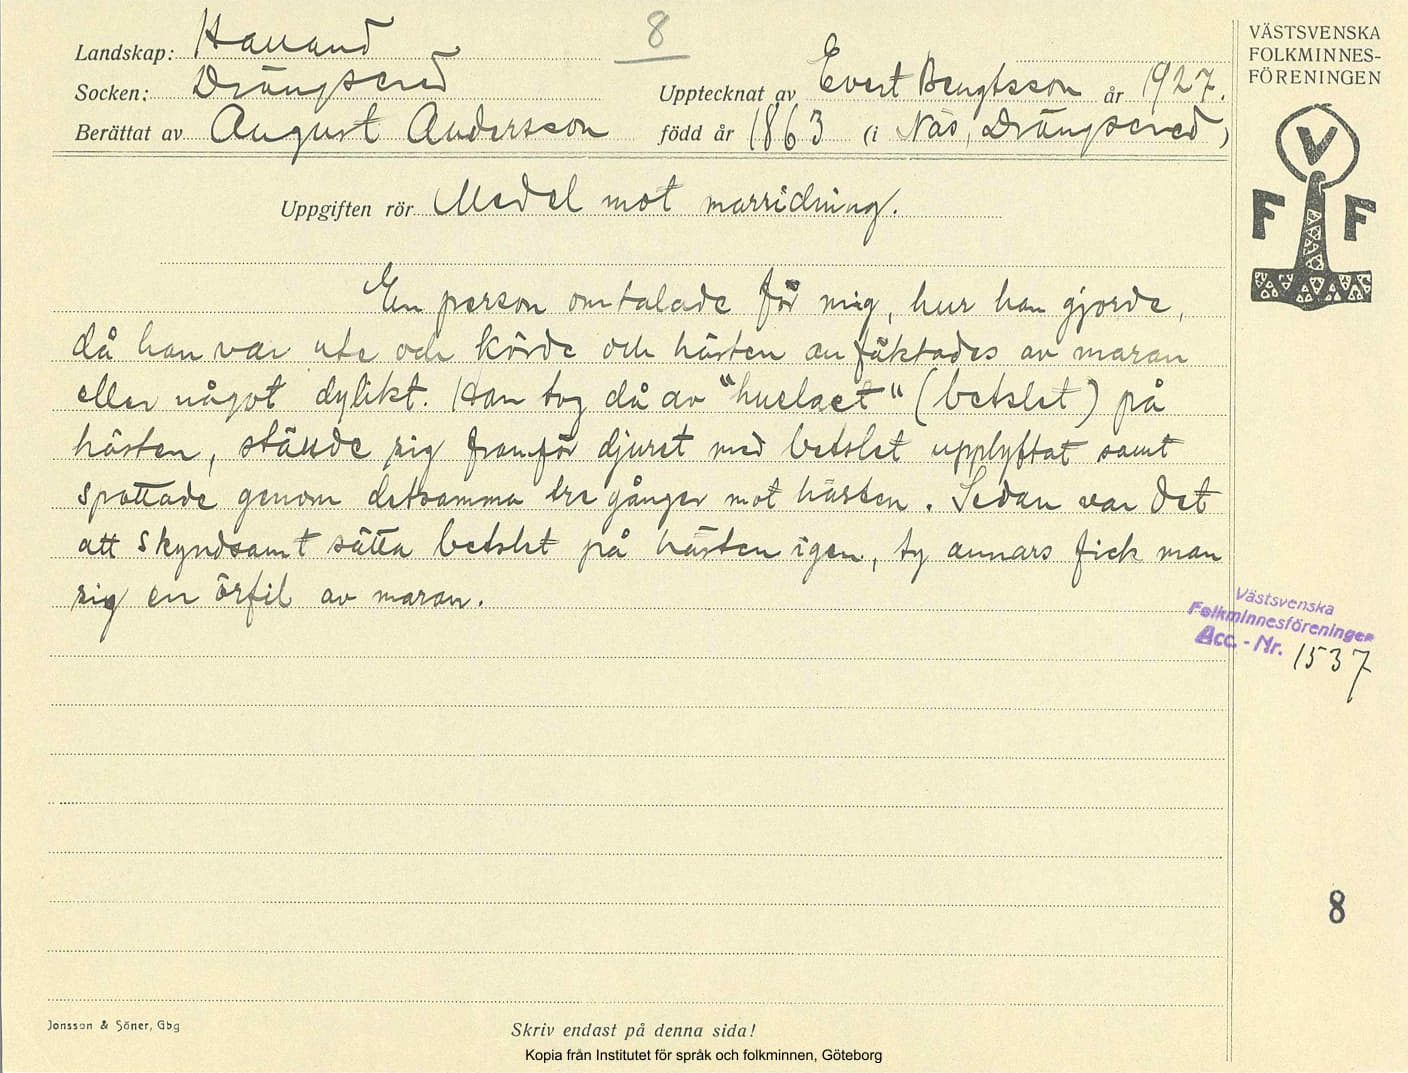 Landskap: Halland
8
Socken: Drängsered
Upptecknat av Evert Bengtsson år 1927.
Berättat av August Andersson
född år 1863 (i Näs, Drängsered)
Uppgiften rör Medel mot marridning.
En person omtalade för mig, hur han gjorde,
då han var ute och körde och hästen anfäktades av maran
eller något dylikt. Han tog då av "huelaet" (betslet) på
hästen, ställde sig framför djuret med betslet upplyftat samt
spottade genom detsamma tre gånger mot hästen. Sedan var det
att skyndsamt sätta betslet på hästen igen, ty annars fick man
sig en örfil av maran.
VÄSTSVENSKA
FOLKMINNES-
FÖRENINGEN
V
F F
Västsvenska
Folkminnesföreningen
Acc. - Nr. 1537
8
Jonsson & Söner, Gbg
Skriv endast på denna sida!
Kopia från Institutet för språk och folkminnen, Göteborg